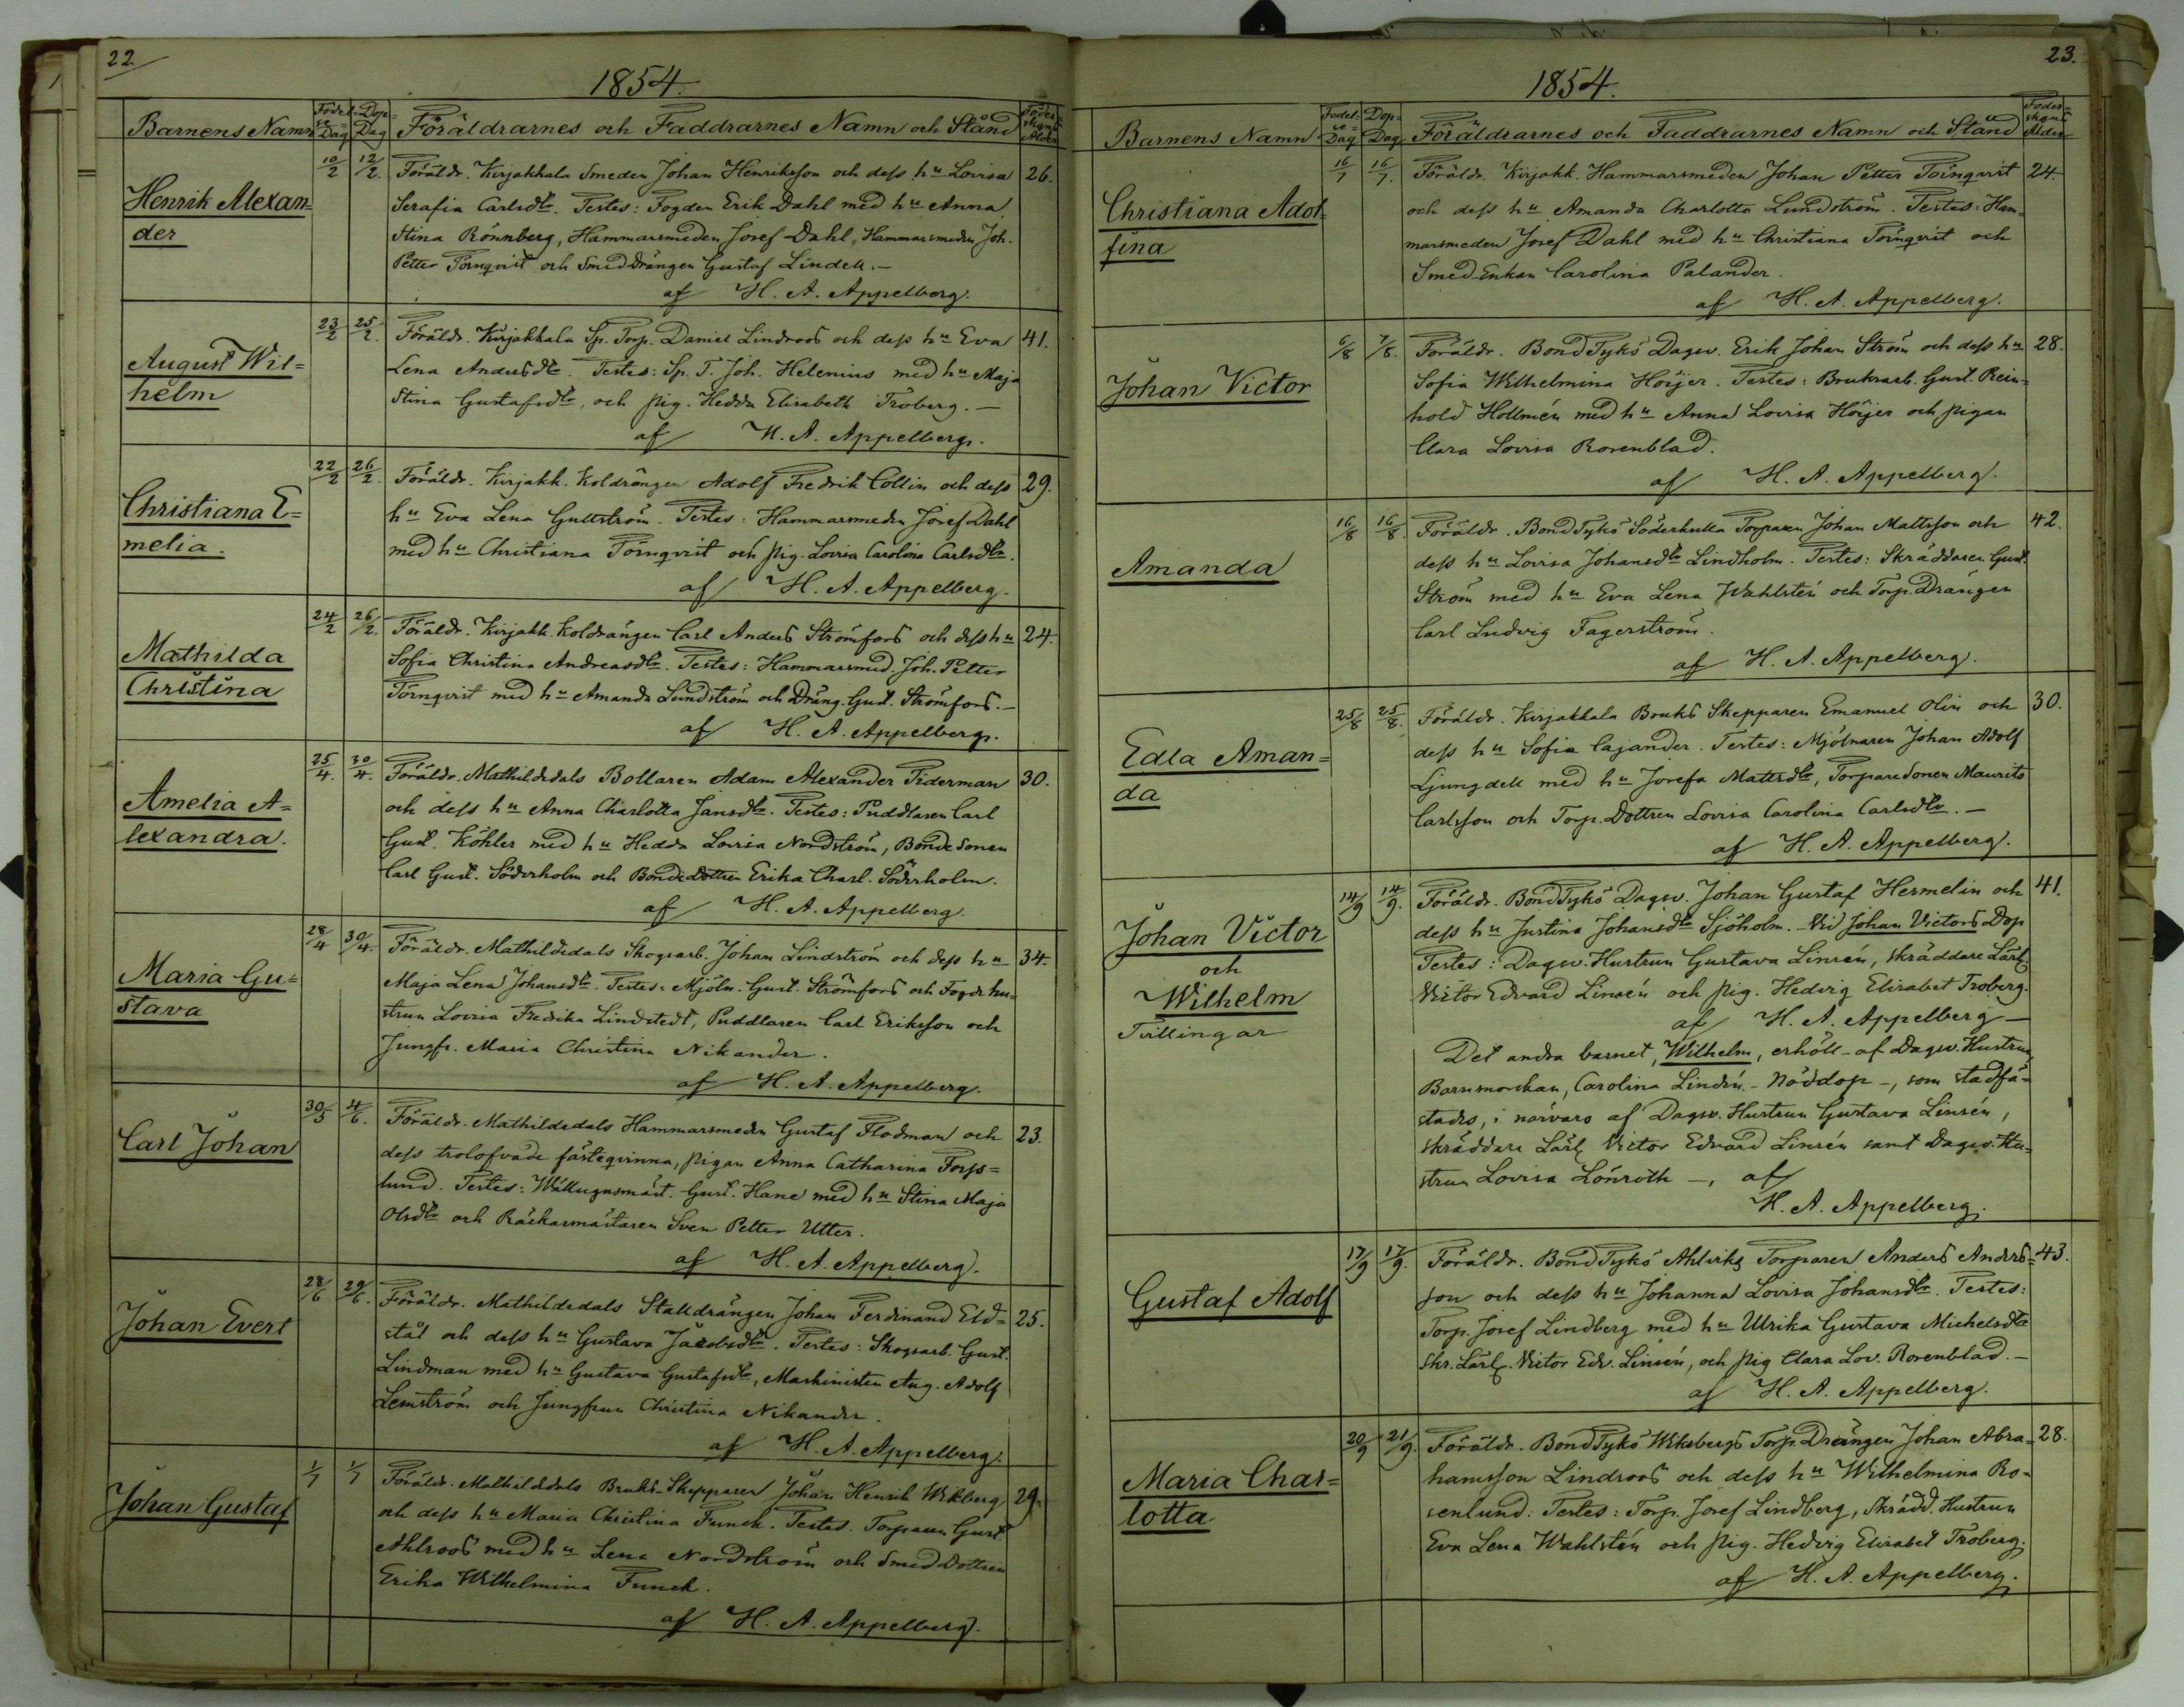 22.
1854.
Barnens Namn Födelse Dag Dop= Dag Föräldrarnes och Faddrarnes Namn och Stånd Föderskans Ålder
Henrik Alexan= 10/2 12/2. Föräldr. Kirjakkala Smeden Johan Henriksson och dess hu Lovisa 26.
der Serafia Carlsdtr. Testes: Fogden Erik Dahl med hu Anna
Stina Rönnberg, Hammarsmeden Josef Dahl, Hammarsmeden Joh.
Petter Törnqvist och Smeddrängen Gustaf Lindell.–
af H. A. Appelberg.
August Wil= 23/2 25/2. Föräldr. Kirjakkala Sp. Torp. Daniel Lindroos och dess hu Eva 41.
helm Lena Andersdtr. Testes: Sp. T. Joh. Helenius med hu Maja
Stina Gustafsdtr, och pig. Hedda Elisabeth Troberg.–
af H. A. Appelberg.
Christiana E= 22/2 26/2. Föräldr. Kirjakk. Koldrängen Adolf Fredrik Collin och dess 29.
melia. hu Eva Lena Gullström. Testes: Hammarsmeden Josef Dahl
med hu Christiana Törnqvist och pig. Lovisa Carolina Carlsdtr.
af H. A. Appelberg.
Mathilda 24/2 26/2. Föräldr. Kirjakk. Koldrängen Carl Anders Strömfors och dess hu 24.
Christina Sofia Christina Andreasdtr. Testes: Hammarsmed. Joh. Petter
Törnqvist med hu Amanda Lundström och Dräng. Gust. Strömfors.–
af H. A. Appelberg.
Amelia A= 25/4. 30/4. Föräldr. Mathildedals Bollaren Adam Alexander Tiderman 30.
lexandra. och dess hu Anna Charlotta Jansdtr. Testes: Puddlaren Carl
Gust. Köhler med hu Hedda Lovisa Nordström, Bondesonen
Carl Gust. Söderholm och Bondedottren Erika Charl. Söderholm.
af H. A. Appelberg.
Maria Gu= 28/4 30/4. Föräldr. Mathildedals Skogsarb. Johan Lindström och dess hu 34.
stava Maja Lena Johansdtr. Testes: Mjöln. Gust. Strömfors och Fogdehu=
strun Lovisa Fredika Lindstedt, Puddlaren Carl Eriksson och
Jungfr. Maria Christina Nikander.
af H. A. Appelberg.
Carl Johan 30/5 4/6. Föräldr. Mathildedals Hammarsmeden Gustaf Flodman och 23.
dess trolofvade fästeqvinna, pigan Anna Catharina Fors=
lund. Testes: Wällugnsmäst. Gust. Hane med hu Stina Maja
Olsdtr och Räckarmästaren Sven Petter Utter.
af H. A. Appelberg.
Johan Evert 28/6 29/6. Föräldr. Mathildedals Stalldrängen Johan Ferdinand Eld= 25.
stål och dess hu Gustava Jacobsdtr. Testes: Skogsarb. Gust.
Lindman med hu Gustava Gustafsdtr, Maskinisten Aug. Adolf
Lemström och Jungfrun Christina Nikander.
af H. A. Appelberg.
Johan Gustaf 1/7 1/7 Föräldr. Mathildedals Bruks-Skepparen Johan Henrik Wikberg 29.
och dess hu Maria Christina Funck. Testes. Torparen Gust.
Ahlroos med hu Lena Nordström och Smeddottren
Erika Wilhelmina Funck.
af H. A. Appelberg.
23.
1854.
Barnens Namn Födelse Dag Dop= Dag Föräldrarnes och Faddrarnes Namn och Stånd Föderskans Ålder
Christiana Adol= 16/7 16/7. Föräldr. Kirjakk. Hammarsmeden Johan Petter Törnqvist 24.
fina och dess hu Amanda Charlotta Lundström. Testes: Ham=
marsmeden Josef Dahl med hu Christiana Törnqvist och
Smed-Enkan Carolina Palander.
af H. A. Appelberg.
Johan Victor 6/8 7/8. Föräldr. Bond Tykö Dagsv. Erik Johan Ström och dess hu 28.
Sofia Wilhelmina Höijer. Testes: Bruksarb. Gust. Rein=
hold Hollmén med hu Anna Lovisa Höijer och pigan
Clara Lovisa Rosenblad.
af H. A. Appelberg.
Amanda 16/8 16/8. Föräldr. Bond Tykö Söderhulta Torparen Johan Mattsson och 42.
dess hu Lovisa Johansdtr Lindholm. Testes: Skräddaren Gust.
Ström med hu Eva Lena Wahlstén och Torp. Drängen
Carl Ludvig Fagerström.
af H. A. Appelberg.
Edla Aman= 25/8 25/8. Föräldr. Kirjakkala Bruks Skepparen Emanuel Olin och 30.
da dess hu Sofia Cajander. Testes: Mjölnaren Johan Adolf
Ljungdell med hu Josefa Mattsdtr, Torparesonen Maurits
Carlsson och Torp. Dottren Lovisa Carolina Carlsdtr.–
af H. A. Appelberg.
Johan Victor 14/9 14/9. Föräldr. Bond Tykö Dagsv. Johan Gustaf Hermelin och 41.
och dess hu Justina Johansdtr Sjöholm.–Vid Johan Victors Dop
Wilhelm Testes: Dagsv. Hustrun Gustava Linsén, skräddare Lärl.
Tvillingar Victor Edvard Linsén och pig. Hedvig Elisabet Troberg.
af H. A. Appelberg–
Det andra barnet, Wilhelm, erhöll – af Dagsv. Hustrun,
Barnmorskan, Carolina Lindén – Nöddop –, som stadfä=
stades, i närvaro af Dagsv. Hustrun Gustava Linsén,
skräddare Lärl. Victor Edvard Linsén samt Dagsv. Hu=
strun Lovisa Lönroth –, af
H. A. Appelberg.
Gustaf Adolf 17/9 17/9. Föräldr. Bond Tykö Ahlviks Torparen Anders Anders= 43.
son och dess hu Johanna Lovisa Johansdtr. Testes:
Torp. Josef Lindberg med hu Ulrika Gustava Michelsdtr
Skr. Lärl. Victor Edv. Linsén, och pig Clara Lov. Rosenblad.–
af H. A. Appelberg.
Maria Char= 20/9 21/9. Föräldr. Bond Tykö Wiksbergs Torp. Drängen Johan Abra= 28.
lotta hamsson Lindroos och dess hu Wilhelmina Ro=
senlund. Testes: Torp. Josef Lindberg, Skrädd. Hustrun
Eva Lena Wahlstén och pig. Hedvig Elisabet Troberg.
af H. A. Appelberg.